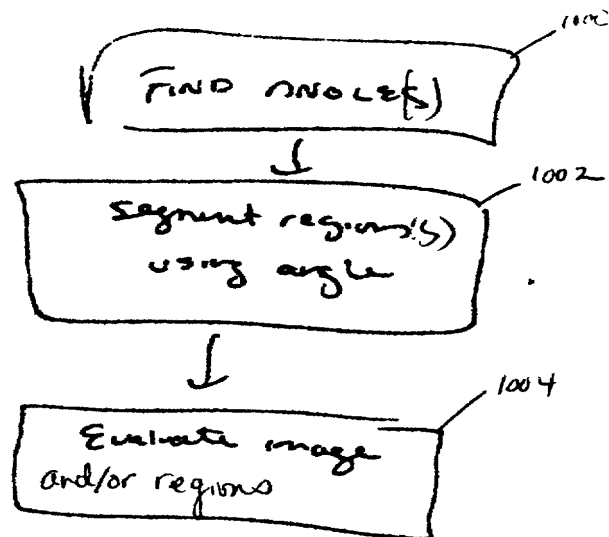 1000
FIND ANGLE(S)
1002
segment regions(s)
using angle
1004
Evaluate image
and/or regions